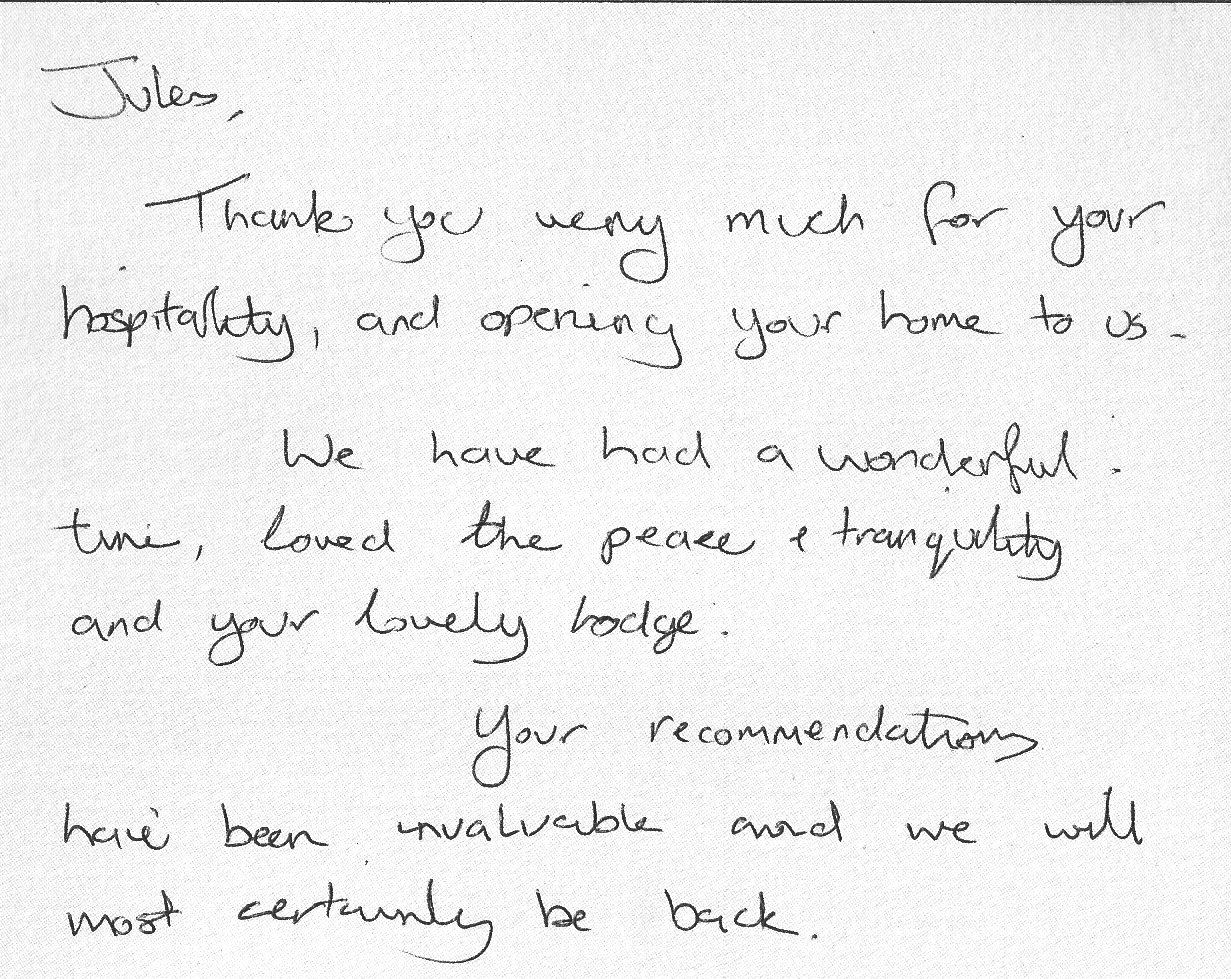 Jules,
Thank you very much for your
hospitality, and opening your home to us.
We have had a wonderful
time, loved the peace & tranquility
and your lovely lodge.
Your recommendations
have been invaluable and we will
most certainly be back.